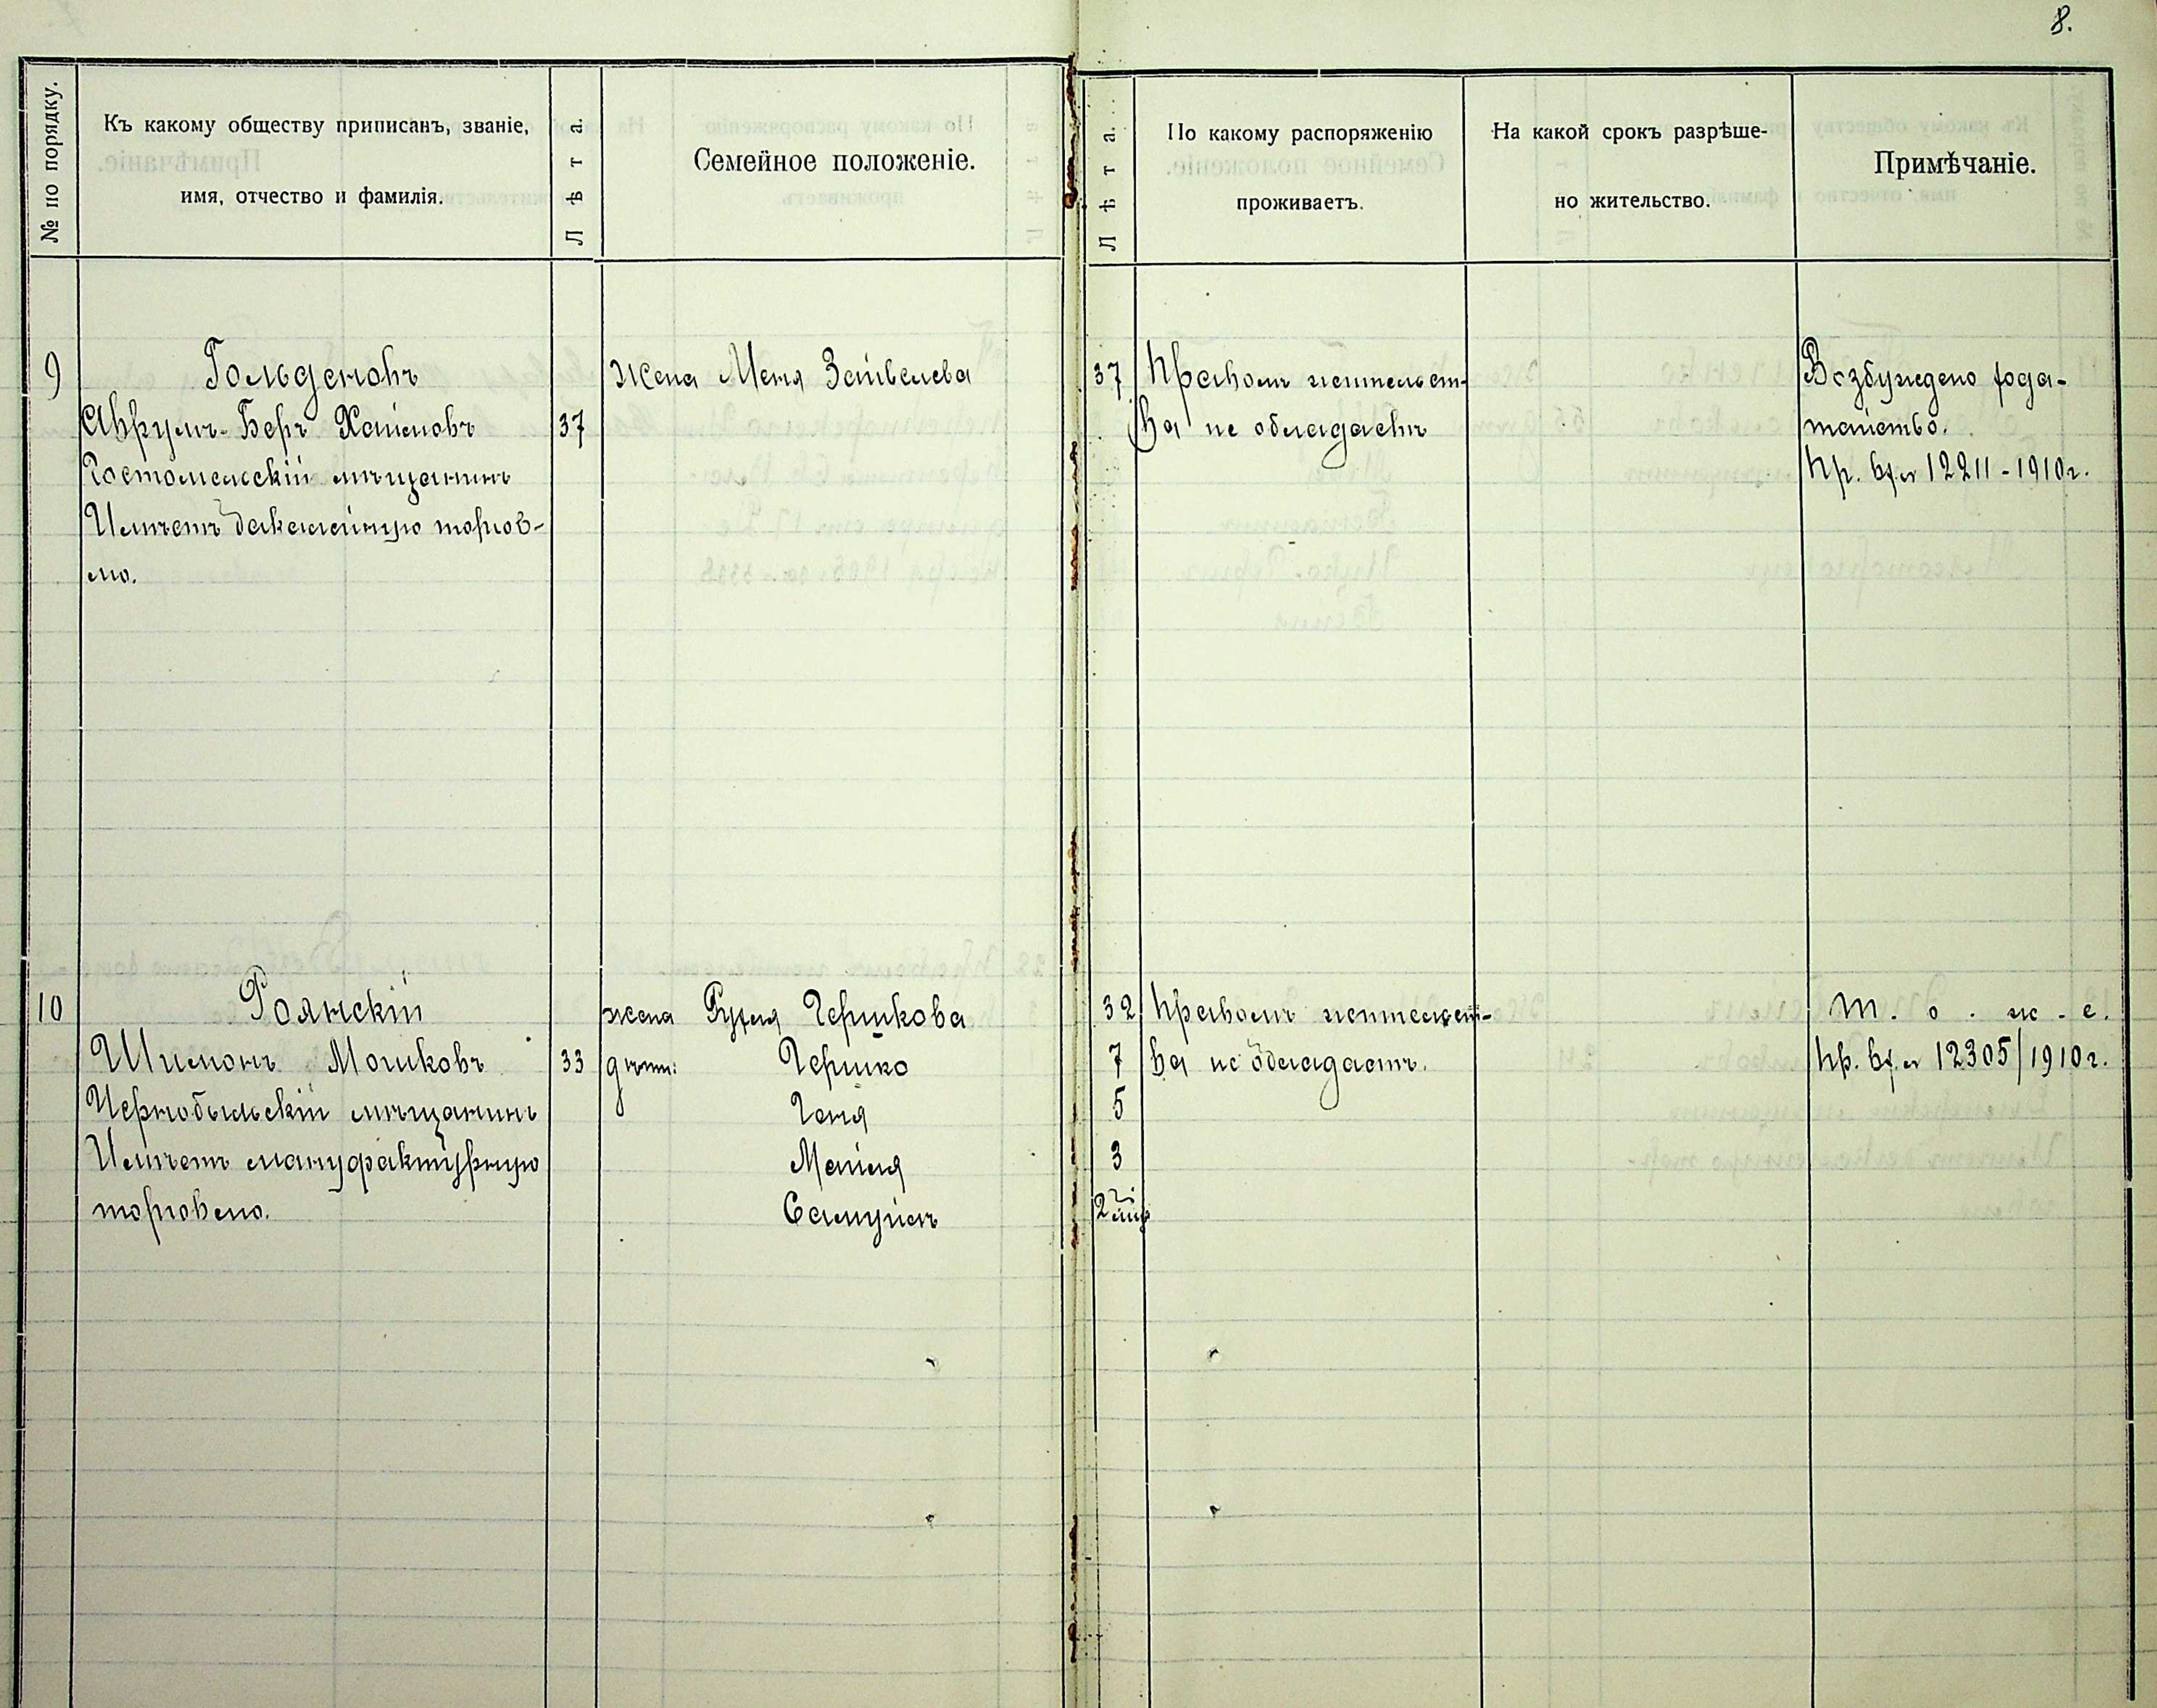 8.
№ по порядку.
Къ какому обществу приписанъ, званіе,
имя, отчество и фамилія.
Лѣта.
Семейное положеніе.
Лѣта.
По какому распоряженію
проживаетъ.
На какой срокъ разрѣше-
но жительство.
Примѣчаніе.
9
Гольденовъ
Аврумъ-Беръ Хаимовъ
37
Гостомельскій мѣщанинъ
Имѣетъ бакалейную торгов-
лю.
жена Меня Зейвелева
37
Правомъ жительст-
ва не обладаетъ
Возбуждено хода-
тайство.
Пр. вх. № 12211-1910г.
10
Роянскій
Шимонъ Мошковъ
33
Чернобыльскій мѣщанинъ
Имѣетъ мануфактурную
торговлю.
жена Рухля Гершкова
32
дѣти: Гершко
7
Геня
5
Маіия
3
Самуилъ
2
Правомъ жительст-
ва не обладаетъ.
Т. о. ж. е.
Пр. вх. № 12305/1910г.